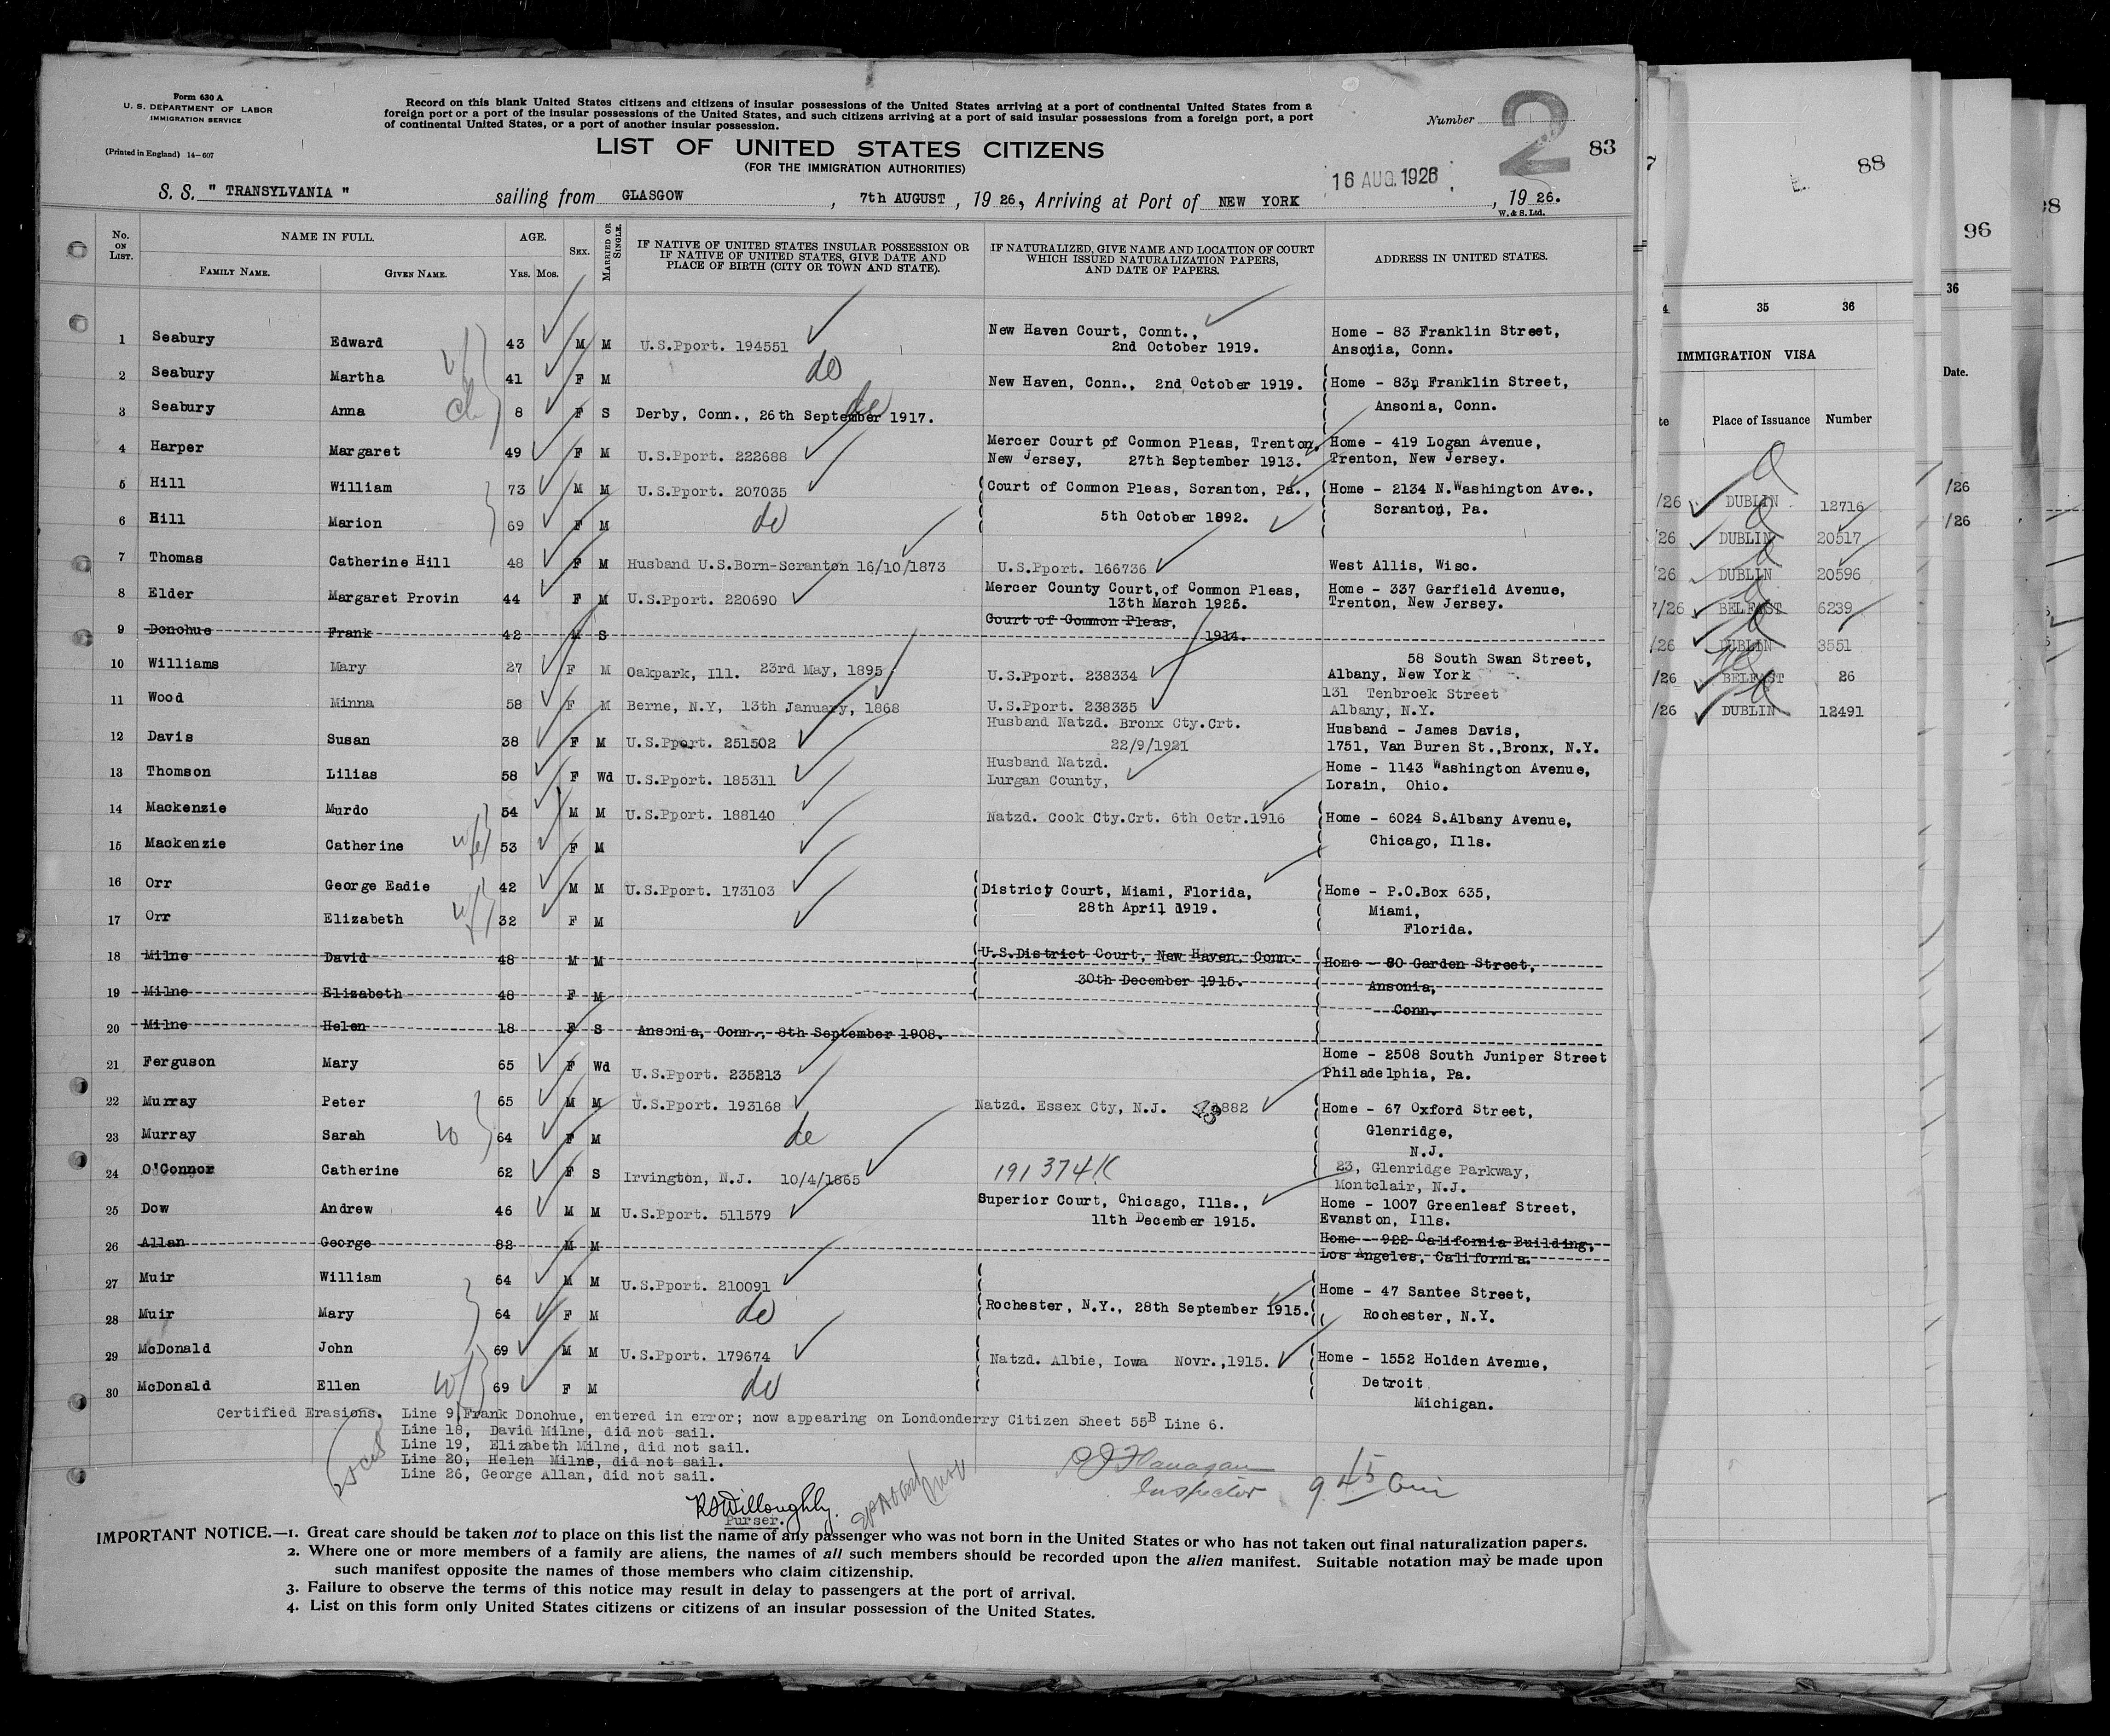 Form 630 A
U. S. DEPARTMENT OF LABOR
IMMIGRATION SERVICE
(Printed in England) 14-607
Record on this blank United States citizens and citizens of insular possessions of the United States arriving at a port of continental United States from a
foreign port or a port of the insular possessions of the United States, and such citizens arriving at a port of said insular possessions from a foreign port, a port
of continental United States, or a port of another insular possession.
Number 2 83
LIST OF UNITED STATES CITIZENS
(FOR THE IMMIGRATION AUTHORITIES)
S. S. " TRANSYLVANIA " sailing from GLASGOW , 7th AUGUST , 19 26, Arriving at Port of NEW YORK 16 AUG. 1926 , 19 26.
W. & S. Ltd.
No. ON LIST. NAME IN FULL. FAMILY NAME. GIVEN NAME. AGE. YRS. MOS. SEX. MARRIED OR SINGLE. IF NATIVE OF UNITED STATES INSULAR POSSESSION OR IF NATIVE OF UNITED STATES, GIVE DATE AND PLACE OF BIRTH (CITY OR TOWN AND STATE). IF NATURALIZED, GIVE NAME AND LOCATION OF COURT WHICH ISSUED NATURALIZATION PAPERS, AND DATE OF PAPERS. ADDRESS IN UNITED STATES.
1 Seabury Edward 43 M M U.S.Pport. 194551 New Haven Court, Connt., 2nd October 1919. Home - 83 Franklin Street, Ansonia, Conn.
2 Seabury Martha 41 F M do New Haven, Conn., 2nd October 1919. Home - 83 Franklin Street,
3 Seabury Anna 8 F S Derby, Conn., 26th September 1917. do Ansonia, Conn.
4 Harper Margaret 49 F M U.S.Pport. 222688 Mercer Court of Common Pleas, Trenton, New Jersey, 27th September 1913. Home - 419 Logan Avenue, Trenton, New Jersey.
5 Hill William 73 M M U.S.Pport. 207035 Court of Common Pleas, Scranton, Pa., Home - 2134 N.Washington Ave.,
6 Hill Marion 69 F M do 5th October 1892. Scranton, Pa.
7 Thomas Catherine Hill 48 F M Husband U.S.Born-Scranton 16/10/1873 U.S.Pport. 166736 West Allis, Wisc.
8 Elder Margaret Provin 44 F M U.S.Pport. 220690 Mercer County Court, of Common Pleas, 13th March 1925. Home - 337 Garfield Avenue, Trenton, New Jersey.
9 Donohue Frank 42 M S Court of Common Pleas, 1914.
10 Williams Mary 27 F M Oakpark, Ill. 23rd May, 1895 U.S.Pport. 238334 58 South Swan Street, Albany, New York
11 Wood Minna 58 F M Berne, N.Y, 13th January, 1868 U.S.Pport. 238335 131 Tenbroek Street Albany, N.Y.
12 Davis Susan 38 F M U.S.Pport. 251502 Husband Natzd. Bronx Cty.Crt. 22/9/1921 Husband - James Davis, 1751, Van Buren St.,Bronx, N.Y.
13 Thomson Lilias 58 F Wd U.S.Pport. 185311 Husband Natzd. Lurgan County, Home - 1143 Washington Avenue, Lorain, Ohio.
14 Mackenzie Murdo 54 M M U.S.Pport. 188140 Natzd. Cook Cty.Crt. 6th Octr.1916 Home - 6024 S.Albany Avenue,
15 Mackenzie Catherine 53 F M Chicago, Ills.
16 Orr George Eadie 42 M M U.S.Pport. 173103 District Court, Miami, Florida, Home - P.O.Box 635,
17 Orr Elizabeth 32 F M 28th April 1919. Miami, Florida.
18 Milne David 48 M M U.S.District Court, New Haven, Conn. Home - 80 Garden Street,
19 Milne Elizabeth 48 F M 30th December 1915. Ansonia, Conn.
20 Milne Helen 18 F S Ansonia, Conn., 8th September 1908.
21 Ferguson Mary 65 F Wd U.S.Pport. 235213 Home - 2508 South Juniper Street Philadelphia, Pa.
22 Murray Peter 65 M M U.S.Pport. 193168 Natzd. Essex Cty, N.J. 1882 Home - 67 Oxford Street,
23 Murray Sarah 64 F M do Glenridge, N.J.
24 O'Connor Catherine 62 F S Irvington, N.J. 10/4/1865 191374 23, Glenridge Parkway, Montclair, N.J.
25 Dow Andrew 46 M M U.S.Pport. 511579 Superior Court, Chicago, Ills., 11th December 1915. Home - 1007 Greenleaf Street, Evanston, Ills.
26 Allan George 82 M M Home - 922 California Building, Los Angeles, California.
27 Muir William 64 M M U.S.Pport. 210091 Home - 47 Santee Street,
28 Muir Mary 64 F M do Rochester, N.Y., 28th September 1915. Rochester, N.Y.
29 McDonald John 69 M M U.S.Pport. 179674 Natzd. Albie, Iowa Novr.,1915. Home - 1552 Holden Avenue,
30 McDonald Ellen 69 F M do Detroit Michigan.
Certified Erasions. Line 9, Frank Donohue, entered in error; now appearing on Londonderry Citizen Sheet 55B Line 6.
Line 18, David Milne, did not sail.
Line 19, Elizabeth Milne, did not sail.
Line 20, Helen Milne, did not sail.
Line 26, George Allan, did not sail.
Flanagan
Inspector 9.45 am
RSWilloughby.
Purser.
IMPORTANT NOTICE.—1. Great care should be taken not to place on this list the name of any passenger who was not born in the United States or who has not taken out final naturalization papers.
2. Where one or more members of a family are aliens, the names of all such members should be recorded upon the alien manifest. Suitable notation may be made upon
such manifest opposite the names of those members who claim citizenship.
3. Failure to observe the terms of this notice may result in delay to passengers at the port of arrival.
4. List on this form only United States citizens or citizens of an insular possession of the United States.
88
35 36
IMMIGRATION VISA
Place of Issuance Number
/26 DUBLIN 12716
/26 DUBLIN 20517
/26 DUBLIN 20596
7/26 BELFAST 6239
/26 DUBLIN 3551
/26 BELFAST 26
/26 DUBLIN 12491
96
36
Date.
/26
/26
98